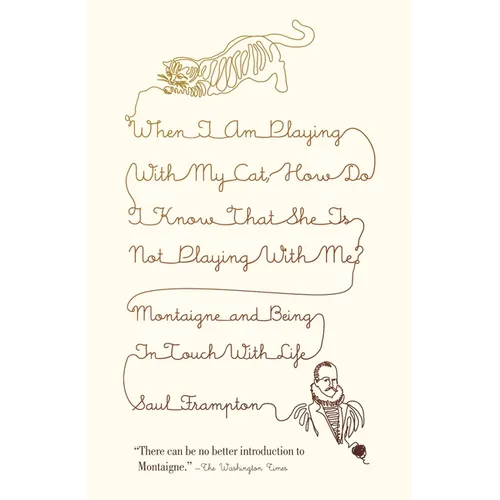 When I Am Playing
With My Cat, How Do
I Know That She Is
Not Playing With Me?
Montaigne and Being
In Touch With Life
Saul Frampton
“There can be no better introduction to
Montaigne.” —The Washington Times